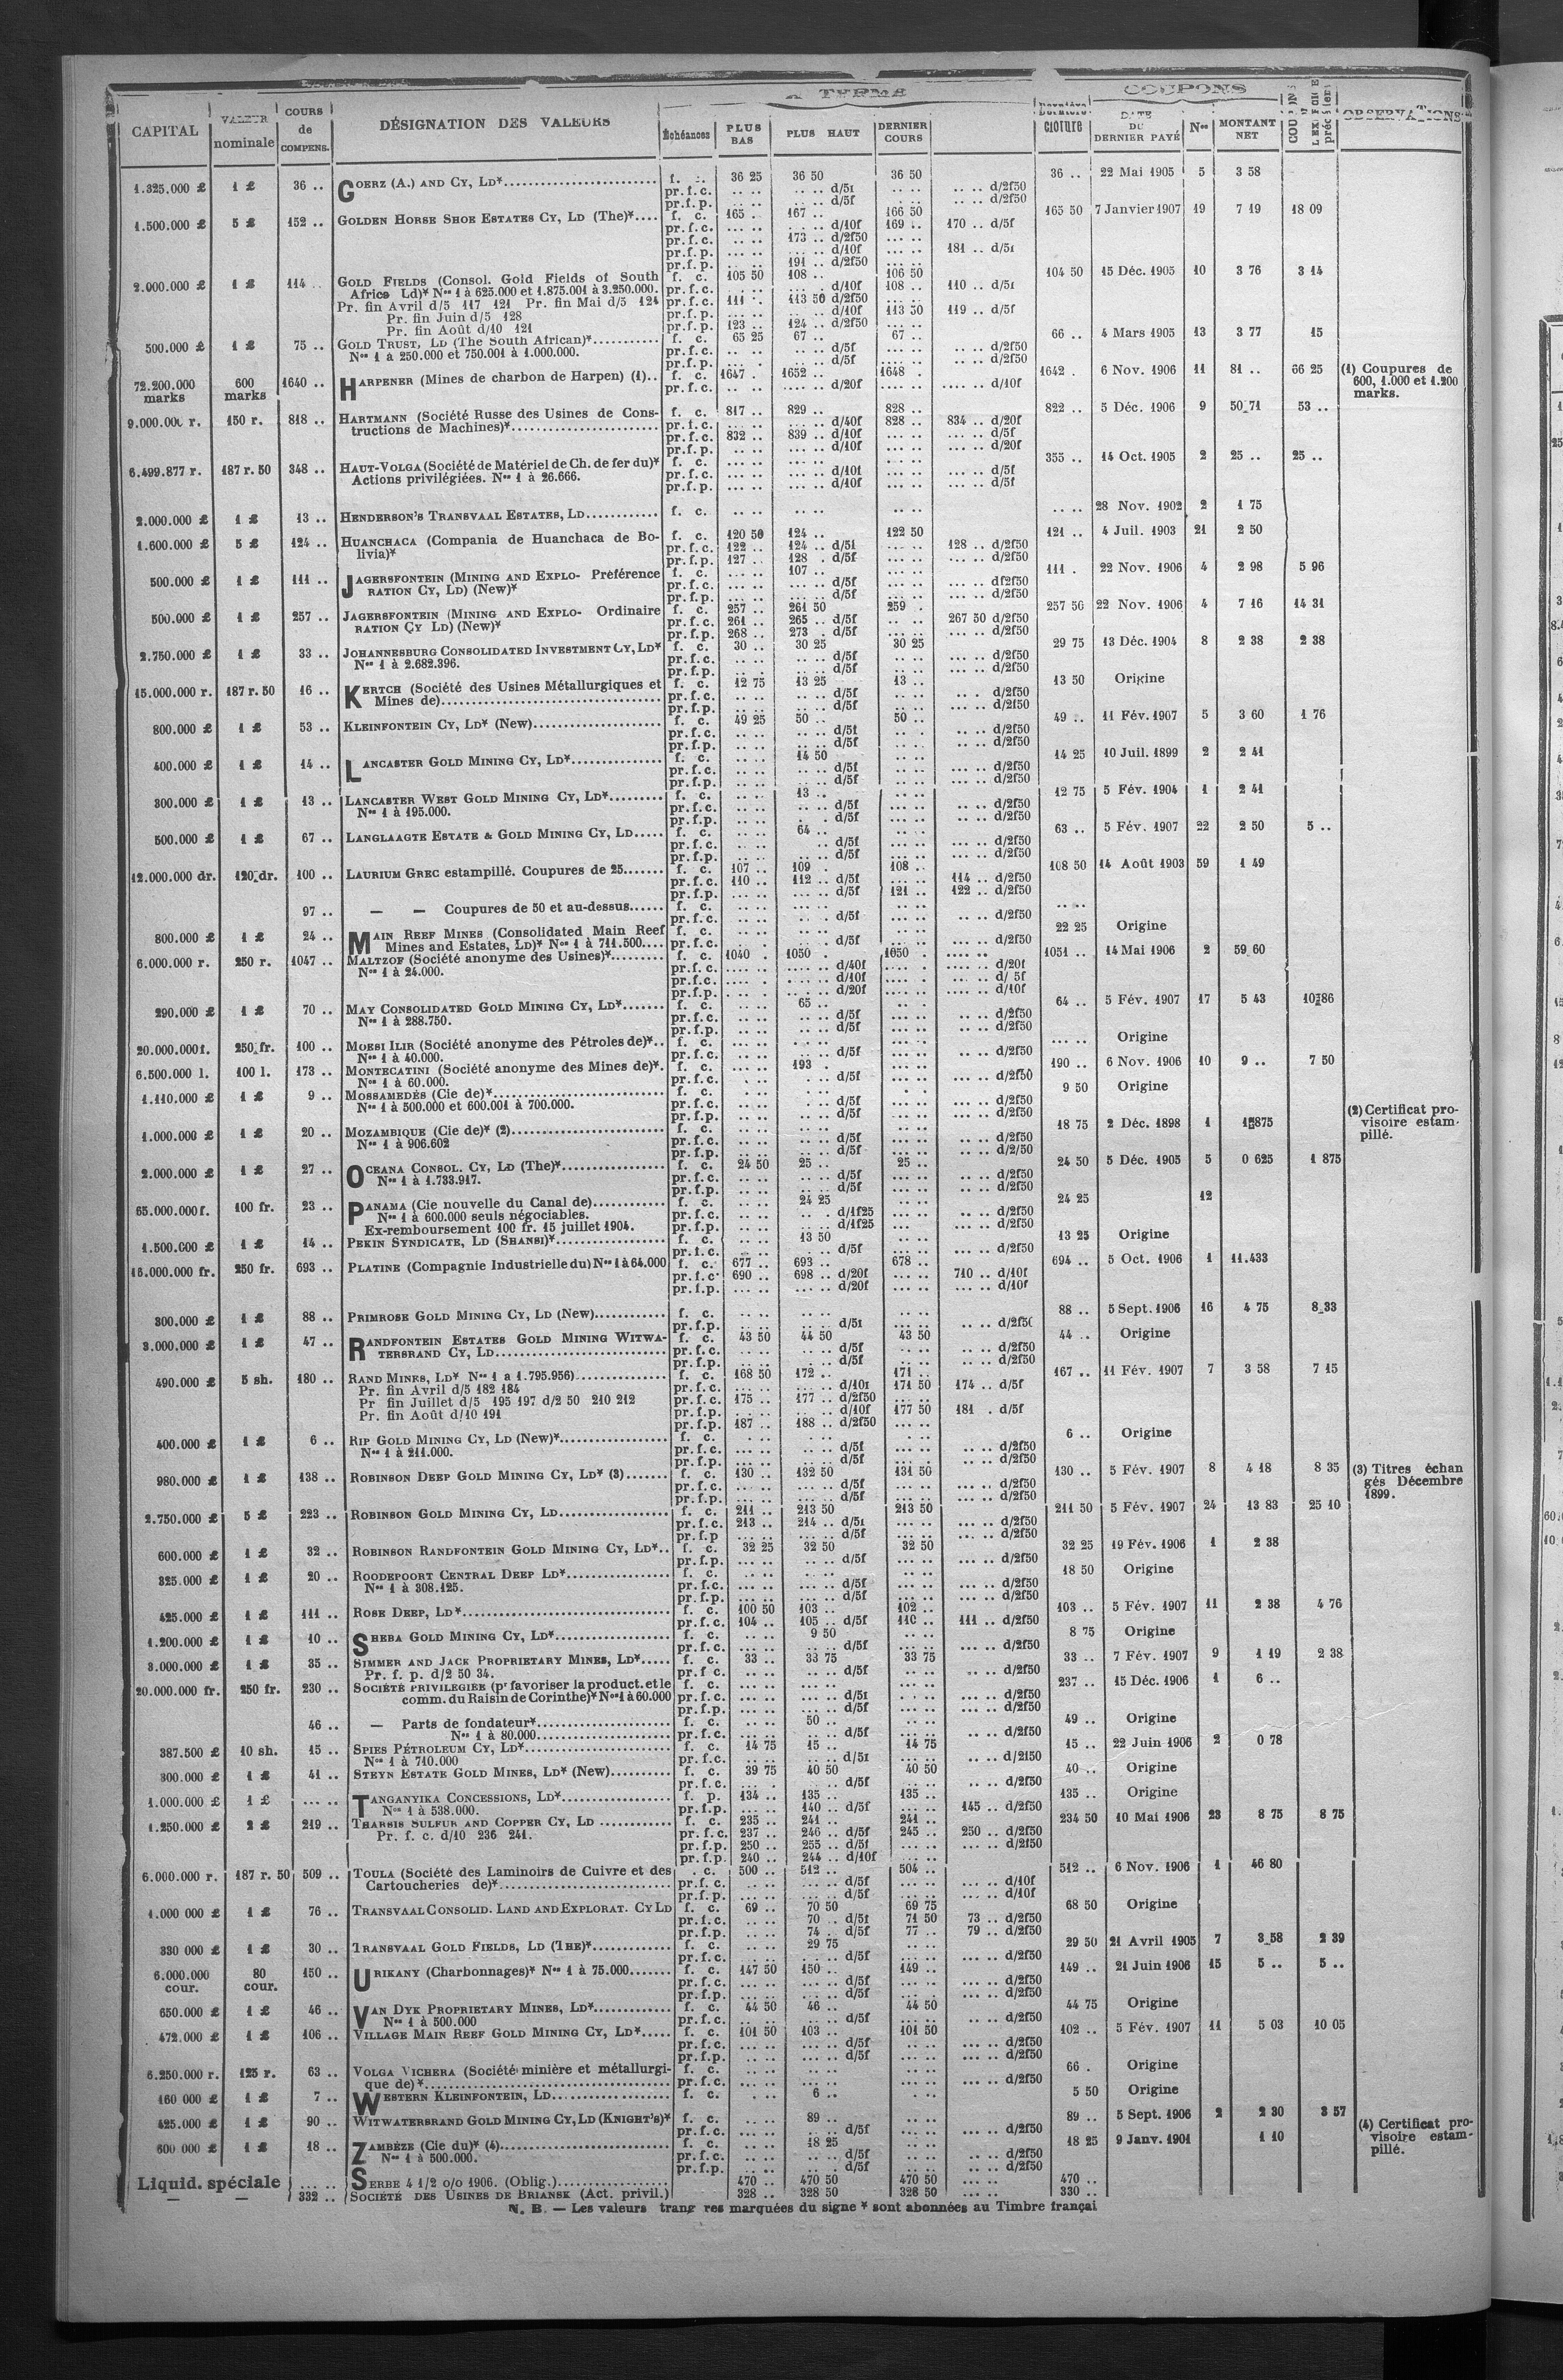 CAPITAL | VALEUR nominale | COURS de COMPENS. | DÉSIGNATION DES VALEURS | A TERME | Échéances | PLUS BAS | PLUS HAUT | DERNIER COURS | Dernière cloture | COUPONS | DATE DU DERNIER PAYÉ | Nos | MONTANT NET | OBSERVATIONS
1.325.000 £ | 1 £ | 36 .. | GOERZ (A.) AND CY, LD* | f. c. | 36 25 | 36 50 | 36 50 | 36 .. | 22 Mai 1905 | 5 | 3 58
pr.f.c. .. .. .. .. d/5f .. .. .. .. d/2f50
pr.f.p. .. .. .. .. d/5f .. .. .. .. d/2f50
1.500.000 £ | 5 £ | 152 .. | GOLDEN HORSE SHOE ESTATES CY, LD (The)* | f. c. | 165 .. | 167 .. | 166 50 | 165 50 | 7 Janvier 1907 | 19 | 7 19 | 18 09
pr.f.c. ... .. ... .. d/10f 169 .. 170 .. d/5f
pr.f.c. ... .. 173 .. d/2f50 ... ..
pr.f.p. ... .. ... .. d/10f ... .. 181 .. d/5f
pr.f.p. ... .. 191 .. d/2f50 ... ..
2.000.000 £ | 1 £ | 114 .. | GOLD FIELDS (Consol. Gold Fields of South | f. c. | 105 50 | 108 .. | 106 50 | 104 50 | 15 Déc. 1905 | 10 | 3 76 | 3 14
Africa Ld)* Nos 1 à 625.000 et 1.875.001 à 3.250.000. pr.f.c. ... .. ... .. d/10f 108 .. 110 .. d/5f
Pr. fin Avril d/5 117 121 Pr. fin Mai d/5 124 pr.f.c. 111 .. 113 50 d/2f50 ... ..
Pr. fin Juin d/5 128 pr.f.p. ... .. ... .. d/10f 113 50 119 .. d/5f
Pr. fin Août d/10 121 pr.f.p. 123 .. 124 .. d/2f50 ... ..
500.000 £ | 1 £ | 75 .. | GOLD TRUST, LD (The South African)* | f. c. | 65 25 | 67 .. | 67 .. | 66 .. | 4 Mars 1905 | 13 | 3 77 | 15
Nos 1 à 250.000 et 750.001 à 1.000.000. pr.f.c. .. .. .. .. d/5f ... .. .. .. d/2f50
pr.f.p. .. .. .. .. d/5f ... .. .. .. d/2f50
72.200.000 marks | 600 marks | 1640 .. | HARPENER (Mines de charbon de Harpen) (1).. | f. c. | 1647 . | 1652 .. | 1648 . | 1642 . | 6 Nov. 1906 | 11 | 81 .. | 66 25 | (1) Coupures de 600, 1.000 et 1.200 marks.
pr.f.c. ... .. .... .. d/20f .... .. .... .. d/10f
9.000.000 r. | 150 r. | 818 .. | HARTMANN (Société Russe des Usines de Cons- | f. c. | 817 .. | 829 .. | 828 .. | 822 .. | 5 Déc. 1906 | 9 | 50 71 | 53 ..
tructions de Machines)* pr.f.c. ... .. ... .. d/40f 828 .. 834 .. d/20f
pr.f.c. 832 .. 839 .. d/10f ... .. ... .. d/5f
pr.f.p. ... .. ... .. d/10f ... .. ... .. d/20f
6.499.877 r. | 187 r. 50 | 348 .. | HAUT-VOLGA (Société de Matériel de Ch. de fer du)* | f. c. | ... .. | ... .. | ... .. | 355 .. | 14 Oct. 1905 | 2 | 25 .. | 25 ..
Actions privilégiées. Nos 1 à 26.666. pr.f.c. ... .. ... .. d/10f ... .. ... .. d/5f
pr.f.p. ... .. ... .. d/10f ... .. ... .. d/5f
2.000.000 £ | 1 £ | 13 .. | HENDERSON'S TRANSVAAL ESTATES, LD | f. c. | .. .. | .. .. | .. .. | .. .. | 28 Nov. 1902 | 2 | 1 75
1.600.000 £ | 5 £ | 124 .. | HUANCHACA (Compania de Huanchaca de Bo- | f. c. | 120 50 | 124 .. | 122 50 | 121 .. | 4 Juil. 1903 | 21 | 2 50
livia)* pr.f.c. 122 .. 124 .. d/5f ... .. 128 .. d/2f50
pr.f.p. 127 .. 128 . d/5f ... .. ... .. d/2f50
500.000 £ | 1 £ | 111 .. | JAGERSFONTEIN (MINING AND EXPLO- Préférence | f. c. | ... .. | 107 .. | ... .. | 111 . | 22 Nov. 1906 | 4 | 2 98 | 5 96
RATION CY, LD) (New)* pr.f.c. ... .. ... .. d/5f ... .. ... .. df2f50
pr.f.p. ... .. ... .. d/5f ... .. ... .. d/2f50
500.000 £ | 1 £ | 257 .. | JAGERSFONTEIN (MINING AND EXPLO- Ordinaire | f. c. | 257 .. | 261 50 | 259 . | 257 50 | 22 Nov. 1906 | 4 | 7 16 | 14 31
RATION CY LD) (New)* pr.f.c. 261 .. 265 .. d/5f .. .. 267 50 d/2f50
pr.f.p. 268 .. 273 . d/5f ... .. ... .. d/2f50
2.750.000 £ | 1 £ | 33 .. | JOHANNESBURG CONSOLIDATED INVESTMENT CY, LD* | f. c. | 30 .. | 30 25 | 30 25 | 29 75 | 13 Déc. 1904 | 8 | 2 38 | 2 38
Nos 1 à 2.682.396. pr.f.c. .. .. .. .. d/5f .. .. ... .. d/2f50
pr.f.p. .. .. .. .. d/5f .. .. ... .. d/2f50
15.000.000 r. | 187 r. 50 | 16 .. | KERTCH (Société des Usines Métallurgiques et | f. c. | 12 75 | 13 25 | 13 .. | 13 50 | Origine
Mines de) pr.f.c. .. .. .. .. d/5f .. .. .. . d/2f50
pr.f.p. .. .. .. .. d/5f .. .. .. .. d/2f50
800.000 £ | 1 £ | 53 .. | KLEINFONTEIN CY, LD* (New) | f. c. | 49 25 | 50 .. | 50 .. | 49 .. | 11 Fév. 1907 | 5 | 3 60 | 1 76
pr.f.c. .. .. .. .. d/5f .. . .. .. d/2f50
pr.f.p. .. .. .. .. d/5f .. .. .. .. d/2f50
400.000 £ | 1 £ | 14 .. | LANCASTER GOLD MINING CY, LD* | f. c. | .. .. | 14 50 | .. .. | 14 25 | 10 Juil. 1899 | 2 | 2 41
pr.f.c. .. .. .. .. d/5f .. .. ... .. d/2f50
pr.f.p. .. .. .. .. d/5f .. .. ... .. d/2f50
300.000 £ | 1 £ | 13 .. | LANCASTER WEST GOLD MINING CY, LD* | f. c. | .. .. | 13 .. | .. .. | 12 75 | 5 Fév. 1904 | 1 | 2 41
Nos 1 à 195.000. pr.f.c. .. .. .. .. d/5f ... .. .. .. d/2f50
pr.f.p. .. .. . . d/5f ... .. .. .. d/2f50
500.000 £ | 1 £ | 67 .. | LANGLAAGTE ESTATE & GOLD MINING CY, LD | f. c. | .. .. | 64 .. | .. .. | 63 .. | 5 Fév. 1907 | 22 | 2 50 | 5 ..
pr.f.c. .. .. .. d/5f ... .. ... .. d/2f50
pr.f.p. .. .. .. d/5f ... .. ... .. d/2f50
12.000.000 dr. | 120 dr. | 100 .. | LAURIUM GREC estampillé. Coupures de 25 | f. c. | 107 .. | 109 . | 108 .. | 108 50 | 14 Août 1903 | 59 | 1 49
pr.f.c. 110 .. 112 .. d/5f ... .. 114 .. d/2f50
pr.f.p. ... .. ... .. d/5f 121 .. 122 .. d/2f50
97 .. | — — Coupures de 50 et au-dessus | f. c. | ... .. | ... .. | ... .. | .. ..
pr.f.c. ... .. .. . d/5f ... .. .. .. d/2f50
800.000 £ | 1 £ | 24 .. | MAIN REEF MINES (Consolidated Main Reef | f. c. | .. .. | .. .. | .. .. | 22 25 | Origine
Mines and Estates, LD)* Nos 1 à 711.500 pr.f.c. . . .. . d/5f .. .. ... .. d/2f50
6.000.000 r. | 250 r. | 1047 .. | MALTZOF (Société anonyme des Usines)* | f. c. | 1040 . | 1050 . | 1050 . | 1051 .. | 14 Mai 1906 | 2 | 59 60
Nos 1 à 24.000. pr.f.c. .... .. .... .. d/40f .... . .... .. d/20f
pr.f.c. .... . .... .. d/10f .... .. .... .. d/ 5f
pr.f.p. ... . .. .. d/20f .... .. .... .. d/10f
290.000 £ | 1 £ | 70 .. | MAY CONSOLIDATED GOLD MINING CY, LD* | f. c. | .. .. | 65 .. | .. .. | 64 .. | 5 Fév. 1907 | 17 | 5 43 | 10 86
Nos 1 à 288.750. pr.f.c. .. .. .. .. d/5f .. .. .. .. d/2f50
pr.f.p. .. .. .. .. d/5f .. .. .. .. d/2f50
20.000.000 f. | 250 fr. | 100 .. | MOESI ILIR (Société anonyme des Pétroles de)*.. | f. c. | ... . | .. . | ... .. | ... .. | Origine
Nos 1 à 40.000. pr.f.c. ... .. .. .. d/5f ... .. .. .. d/2f50
6.500.000 l. | 100 l. | 173 .. | MONTECATINI (Société anonyme des Mines de)*. | f. c. | ... .. | 193 . | ... .. | 190 .. | 6 Nov. 1906 | 10 | 9 .. | 7 50
Nos 1 à 60.000. pr.f.c. . .. . .. d/5f ... .. ... .. d/2f50
1.110.000 £ | 1 £ | 9 .. | MOSSAMEDÈS (Cie de)* | f. c. | .. .. | .. .. | .. .. | 9 50 | Origine
Nos 1 à 500.000 et 600.001 à 700.000. pr.f.c. .. .. .. .. d/5f .. .. ... .. d/2f50
pr.f.p. .. .. .. .. d/5f .. .. ... .. d/2f50
1.000.000 £ | 1 £ | 20 .. | MOZAMBIQUE (Cie de)* (2) | f. c. | .. .. | .. .. | .. .. | 18 75 | 2 Déc. 1898 | 1 | 1 875 | (2) Certificat provisoire estampillé.
Nos 1 à 906.602 pr.f.c. .. .. .. .. d/5f .. .. .. .. d/2f50
pr.f.p. .. .. .. .. d/5f .. .. .. .. d/2/50
2.000.000 £ | 1 £ | 27 .. | OCEANA CONSOL. CY, LD (The)* | f. c. | 24 50 | 25 .. | 25 .. | 24 50 | 5 Déc. 1905 | 5 | 0 625 | 1 875
Nos 1 à 1.733.917. pr.f.c. .. .. .. .. d/5f ... .. .. .. d/2f50
pr.f.p. .. .. .. .. d/5f ... .. .. .. d/2f50
65.000.000 f. | 100 fr. | 23 .. | PANAMA (Cie nouvelle du Canal de) | f. c. | .. .. | 24 25 | ... .. | 24 25 | 12
Nos 1 à 600.000 seuls négociables. pr.f.c. .. .. .. d/1f25 ... .. ... .. d/2f50
Ex-remboursement 100 fr. 15 juillet 1904. pr.f.p. .. .. .. d/1f25 ... ... .. d/2f50
1.500.000 £ | 1 £ | 14 .. | PEKIN SYNDICATE, LD (SHANSI)* | f. c. | .. .. | 13 50 | .. .. | 13 25 | Origine
pr.f.c. .. .. . .. d/5f ... .. ... .. d/2f50
16.000.000 fr. | 250 fr. | 693 .. | PLATINE (Compagnie Industrielle du) Nos 1 à 64.000 | f. c. | 677 .. | 693 .. | 678 .. | 694 .. | 5 Oct. 1906 | 1 | 11.433
pr.f.c. 690 .. 698 .. d/20f ... .. 710 .. d/10f
pr.f.p. ... .. ... .. d/20f ... .. ... .. d/10f
300.000 £ | 1 £ | 88 .. | PRIMROSE GOLD MINING CY, LD (New) | f. c. | .. .. | .. .. | .. .. | 88 .. | 5 Sept. 1906 | 16 | 4 75 | 8 33
pr.f.p. .. .. .. .. d/5f .. .. .. .. d/2f50
3.000.000 £ | 1 £ | 47 .. | RANDFONTEIN ESTATES GOLD MINING WITWA- | f. c. | 43 50 | 44 50 | 43 50 | 44 .. | Origine
TERSRAND CY, LD pr.f.c. .. .. .. .. d/5f .. .. .. .. d/2f50
pr.f.p. .. .. .. .. d/5f .. .. .. .. d/2f50
490.000 £ | 5 sh. | 180 .. | RAND MINES, LD* Nos 1 à 1.795.956) | f. c. | 168 50 | 172 .. | 171 .. | 167 .. | 11 Fév. 1907 | 7 | 3 58 | 7 15
Pr. fin Avril d/5 182 184 pr.f.c. ... .. ... .. d/10f 171 50 174 .. d/5f
Pr fin Juillet d/5 195 197 d/2 50 210 212 pr.f.c. 175 .. 177 .. d/2f50 ... ..
Pr. fin Août d/10 191 pr.f.p. ... .. ... .. d/10f 177 50 181 . d/5f
pr.f.p. 187 .. 188 .. d/2f50 ... ..
400.000 £ | 1 £ | 6 .. | RIP GOLD MINING CY, LD (New)* | f. c. | . .. | . .. | . .. | 6 .. | Origine
Nos 1 à 211.000. pr.f.c. ... .. .. .. d/5f ... .. .. .. d/2f50
pr.f.p. ... .. .. .. d/5f ... .. .. .. d/2f50
980.000 £ | 1 £ | 138 .. | ROBINSON DEEP GOLD MINING CY, LD* (3) | f. c. | 130 .. | 132 50 | 131 50 | 130 .. | 5 Fév. 1907 | 8 | 4 18 | 8 35 | (3) Titres échangés Décembre 1899.
pr.f.c. ... .. ... .. d/5f ... .. ... .. d/2f50
pr.f.p. ... .. ... .. d/5f ... .. ... .. d/2f50
2.750.000 £ | 5 £ | 223 .. | ROBINSON GOLD MINING CY, LD | f. c. | 211 .. | 213 50 | 213 50 | 211 50 | 5 Fév. 1907 | 24 | 13 83 | 25 10
pr.f.c. 213 .. 214 .. d/5f ... .. ... .. d/2f50
pr.f.p ... .. ... .. d/5f ... .. ... .. d/2f50
600.000 £ | 1 £ | 32 .. | ROBINSON RANDFONTEIN GOLD MINING CY, LD*.. | f. c. | 32 25 | 32 50 | 32 50 | 32 25 | 19 Fév. 1906 | 1 | 2 38
pr.f.p. ... .. ... .. d/5f ... .. ... .. d/2f50
325.000 £ | 1 £ | 20 .. | ROODEPOORT CENTRAL DEEP LD* | f. c. | .. .. | .. .. | .. .. | 18 50 | Origine
Nos 1 à 308.125. pr.f.c. ... .. ... .. d/5f ... .. ... .. d/2f50
pr.f.p. ... .. ... .. d/5f ... .. ... .. d/2f50
425.000 £ | 1 £ | 111 .. | ROSE DEEP, LD* | f. c. | 100 50 | 103 .. | 102 .. | 103 .. | 5 Fév. 1907 | 11 | 2 38 | 4 76
pr.f.c. 104 .. 105 .. d/5f 110 .. 111 .. d/2f50
1.200.000 £ | 1 £ | 10 .. | SHEBA GOLD MINING CY, LD* | f. c. | .. .. | 9 50 | .. .. | 8 75 | Origine
pr.f.c. ... .. .. .. d/5f ... .. ... .. d/2f50
3.000.000 £ | 1 £ | 35 .. | SIMMER AND JACK PROPRIETARY MINES, LD* | f. c. | 33 .. | 33 75 | 33 75 | 33 .. | 7 Fév. 1907 | 9 | 1 19 | 2 38
Pr. f. p. d/2 50 34. pr.f c. .. .. .. .. d/5f .. .. .. .. d/2f50
20.000.000 fr. | 250 fr. | 230 .. | SOCIÉTÉ PRIVILÉGIÉE (pr favoriser la product. et le | f. c. | ... .. | ... .. | ... .. | 237 .. | 15 Déc. 1906 | 1 | 6 ..
comm. du Raisin de Corinthe)* Nos 1 à 60.000 pr.f.c. ... .. ... .. d/5f . .. ... .. d/2f50
pr.f.p. ... .. ... .. d/5f ... .. ... .. d/2f50
46 .. | — Parts de fondateur* | f. c. | .. .. | 50 .. | .. .. | 49 .. | Origine
Nos 1 à 80.000 pr.f.c. ... .. .. .. d/5f ... .. ... .. d/2f50
387.500 £ | 10 sh. | 15 .. | SPIES PÉTROLEUM CY, LD* | f. c. | 14 75 | 15 .. | 14 75 | 15 .. | 22 Juin 1906 | 2 | 0 78
Nos 1 à 710.000 pr.f.c. ... .. .. .. d/5f ... .. .. .. d/2f50
300.000 £ | 1 £ | 41 .. | STEYN ESTATE GOLD MINES, LD* (New) | f. c. | 39 75 | 40 50 | 40 50 | 40 .. | Origine
pr.f.c. ... . .. .. d/5f ... .. .. .. d/2f50
1.000.000 £ | 1 £ | ... .. | TANGANYIKA CONCESSIONS, LD* | f. p. | 134 .. | 135 .. | 135 .. | 135 .. | Origine
Nos 1 à 538.000. pr.f.p. ... .. 140 .. d/5f ... .. 145 .. d/2f50
1.250.000 £ | 2 £ | 219 .. | THARSIS SULFUR AND COPPER CY, LD | f. c. | 235 .. | 241 .. | 241 .. | 234 50 | 10 Mai 1906 | 23 | 8 75 | 8 75
Pr. f. c. d/10 236 241. pr.f.c. 237 .. 246 .. d/5f 245 .. 250 .. d/2f50
pr.f.p. 250 .. 255 .. d/5f ... .. ... .. d/2f50
pr.f.p. 240 .. 244 .. d/10f ... ..
6.000.000 r. | 187 r. 50 | 509 .. | TOULA (Société des Laminoirs de Cuivre et des | . c. | 500 .. | 512 .. | 504 .. | 512 .. | 6 Nov. 1906 | 1 | 46 80
Cartoucheries de)* pr.f.c. ... .. ... .. d/5f ... .. ... .. d/10f
pr.f.p. ... .. ... .. d/5f ... .. ... .. d/10f
1.000 000 £ | 1 £ | 76 .. | TRANSVAAL CONSOLID. LAND AND EXPLORAT. CY LD | f. c. | 69 .. | 70 50 | 69 75 | 68 50 | Origine
pr.f.c. .. .. 70 .. d/5f 71 50 73 .. d/2f50
pr.f.p. .. .. 74 . d/5f 77 .. 79 .. d/2f50
330 000 £ | 1 £ | 30 .. | TRANSVAAL GOLD FIELDS, LD (THE)* | f. c. | .. .. | 29 75 | .. .. | 29 50 | 21 Avril 1905 | 7 | 3 58 | 2 39
pr.f.c. ... .. . .. d/5f ... .. ... .. d/2f50
6.000.000 cour. | 80 cour. | 150 .. | URIKANY (Charbonnages)* Nos 1 à 75.000 | f. c. | 147 50 | 150 .. | 149 .. | 149 .. | 21 Juin 1906 | 15 | 5 .. | 5 ..
pr.f.c. ... .. ... .. d/5f ... .. ... .. d/2f50
pr.f.p. ... .. ... .. d/5f ... .. ... .. d/2f50
650.000 £ | 1 £ | 46 .. | VAN DYK PROPRIETARY MINES, LD* | f. c. | 44 50 | 46 .. | 44 50 | 44 75 | Origine
Nos 1 à 500.000 pr.f.c. .. .. .. .. d/5f ... .. .. .. d/2f50
472.000 £ | 1 £ | 106 .. | VILLAGE MAIN REEF GOLD MINING CY, LD* | f. c. | 101 50 | 103 .. | 101 50 | 102 .. | 5 Fév. 1907 | 11 | 5 03 | 10 05
pr.f.c. .. .. .. .. d/5f ... .. ... .. d/2f50
pr.f.p. .. .. .. .. d/5f ... .. ... .. d/2f50
6.250.000 r. | 125 r. | 63 .. | VOLGA VICHERA (Société minière et métallurgi- | f. c. | .. .. | .. .. | .. .. | 66 . | Origine
que de)* pr.f.c. ... .. ... .. ... .. ... .. d/2f50
160 000 £ | 1 £ | 7 .. | WESTERN KLEINFONTEIN, LD | f. c. | . .. | 6 .. | . .. | 5 50 | Origine
425.000 £ | 1 £ | 90 .. | WITWATERSRAND GOLD MINING CY, LD (KNIGHT'S)* | f. c. | .. .. | 89 .. | .. .. | 89 .. | 5 Sept. 1906 | 2 | 2 30 | 3 57
pr.f.c. ... .. .. .. d/5f ... .. .. .. d/2f50
600 000 £ | 1 £ | 18 .. | ZAMBÈZE (Cie du)* (4) | f. c. | .. .. | 18 25 | .. .. | 18 25 | 9 Janv. 1901 | 1 10 | (4) Certificat provisoire estampillé.
Nos 1 à 500.000. pr.f.c. .. .. .. .. d/5f ... .. .. .. d/2f50
pr.f.p. .. .. .. . d/5f ... .. .. .. d/2f50
Liquid. spéciale | ... .. | SERBE 4 1/2 o/o 1906. (Oblig.) | 470 .. | 470 50 | 470 50 | ... .. | 470 ..
— — | 332 .. | SOCIÉTÉ DES USINES DE BRIANSK (Act. privil.) | 328 .. | 328 50 | 328 50 | ... .. | 330 ..
N. B. — Les valeurs trang res marquées du signe * sont abonnées au Timbre françai